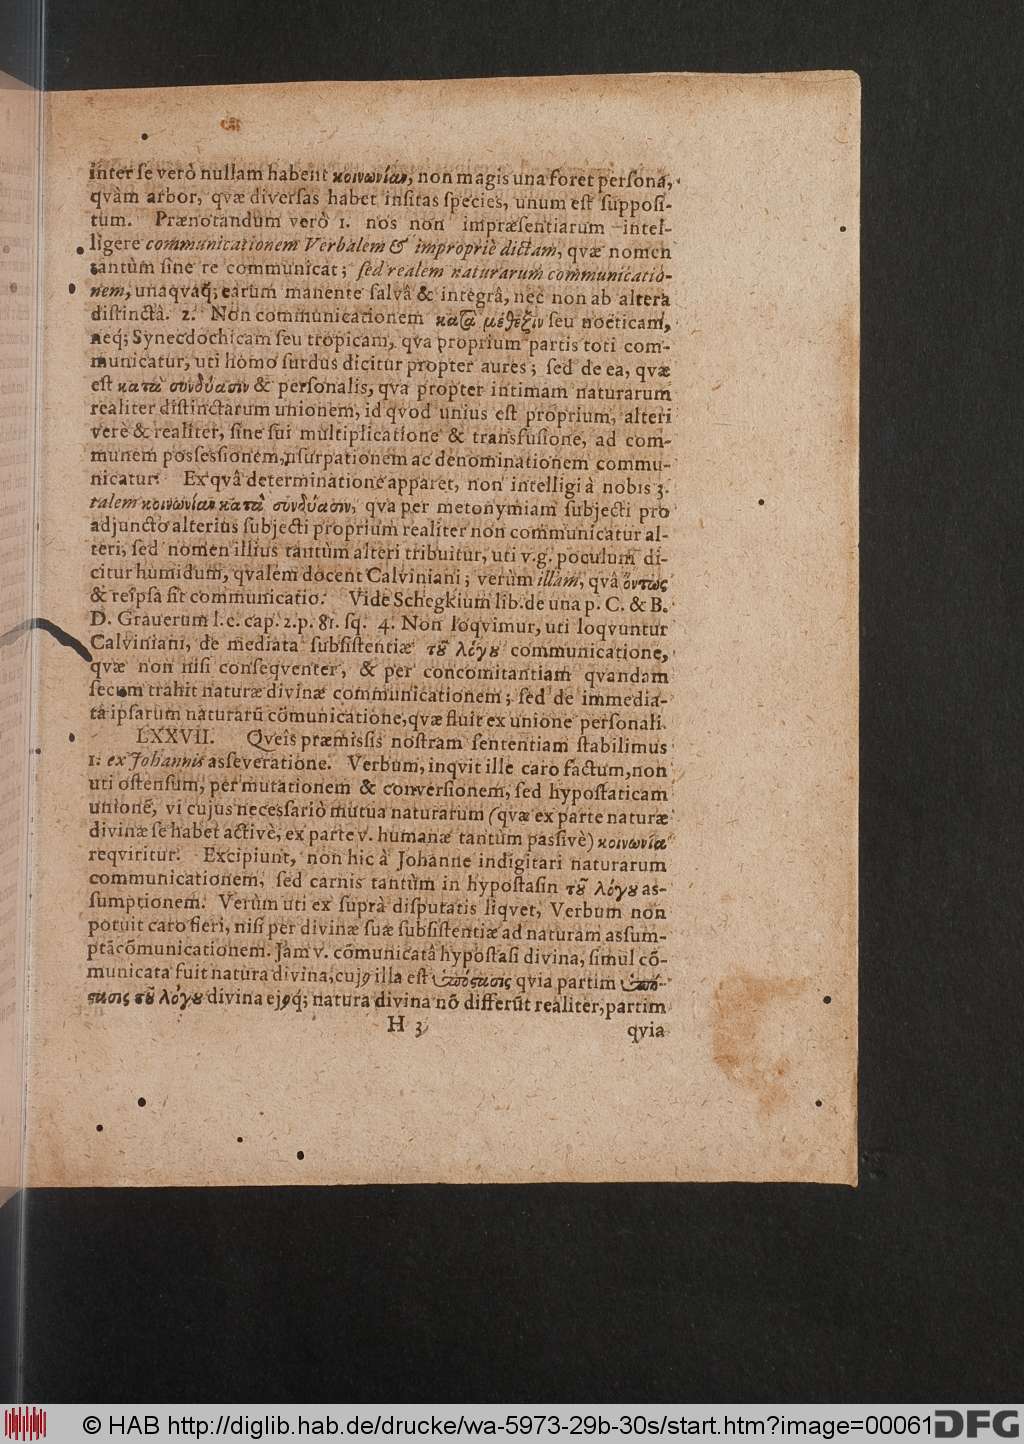 inter se verò nullam habent κοινωνίαν, non magis una foret persona,
qvàm arbor, qvæ diversas habet insitas species, unum est supposi-
tum. Prænotandum verò 1. nos non impræsentiarum intel-
ligere communicationem Verbalem & impropriè dictam, qvæ nomen
tantùm sine re communicat; sed realem naturarum communicatio-
nem, unaqvaq́; earum manente salvâ & integrâ, nec non ab altera
distinctâ. 2. Non communicationem κατὰ μέθεξιν seu noëticam,
neq́; Synecdochicam seu tropicam, qva proprium partis toti com-
municatur, uti homo surdus dicitur propter aures; sed de ea, qvæ
est κατὰ συνδύασιν & personalis, qva propter intimam naturarum
realiter distinctarum unionem, id qvod unius est proprium, alteri
verè & realiter, sine sui multiplicatione & transfusione, ad com-
munem possessionem, usurpationem ac denominationem commu-
nicatur. Ex qvâ determinatione apparet, non intelligi à nobis 3.
talem κοινωνίαν κατὰ συνδύασιν, qva per metonymiam subjecti pro
adjuncto alterius subjecti proprium realiter non communicatur al-
teri, sed nomen illius tantùm alteri tribuitur, uti v.g. poculum di-
citur humidum, qvalem docent Calviniani; verùm illam, qvâ ὄντως
& reipsa sit communicatio. Vide Schegkium lib. de una p. C. & B.
D. Grauerum l. c. cap. 2. p. 81. sq. 4. Non loqvimur, uti loqvuntur
Calviniani, de mediata subsistentiæ τοῦ λόγου communicatione,
qvæ non nisi conseqventer, & per concomitantiam qvandam
secum trahit naturæ divinæ communicationem; sed de immedia-
ta ipsarum naturarũ cõmunicatione, qvæ fluit ex unione personali.
LXXVII. Qveis præmissis nostram sententiam stabilimus
1. ex Johannis asseveratione. Verbum, inqvit ille caro factum, non
uti ostensum, per mutationem & conversionem, sed hypostaticam
unionẽ, vi cujus necessariò mutua naturarum (qvæ ex parte naturæ
divinæ se habet activè, ex parte v. humanæ tantùm passivè) κοινωνία
reqviritur. Excipiunt, non hic à Johanne indigitari naturarum
communicationem, sed carnis tantùm in hypostasin τοῦ λόγου as-
sumptionem. Verùm uti ex suprà disputatis liqvet, Verbum non
potuit caro fieri, nisi per divinæ suæ subsistentiæ ad naturam assum-
ptã cõmunicationem. Jam v. cõmunicatâ hypostasi divina, simul cõ-
municata fuit natura divina, cujꝰ illa est ὑπόστασις qvia partim ὑπό-
στασις τοῦ λόγου divina ejꝰq́; natura divina nõ differũt realiter, partim
H 3
qvia
© HAB http://diglib.hab.de/drucke/wa-5973-29b-30s/start.htm?image=00061
DFG